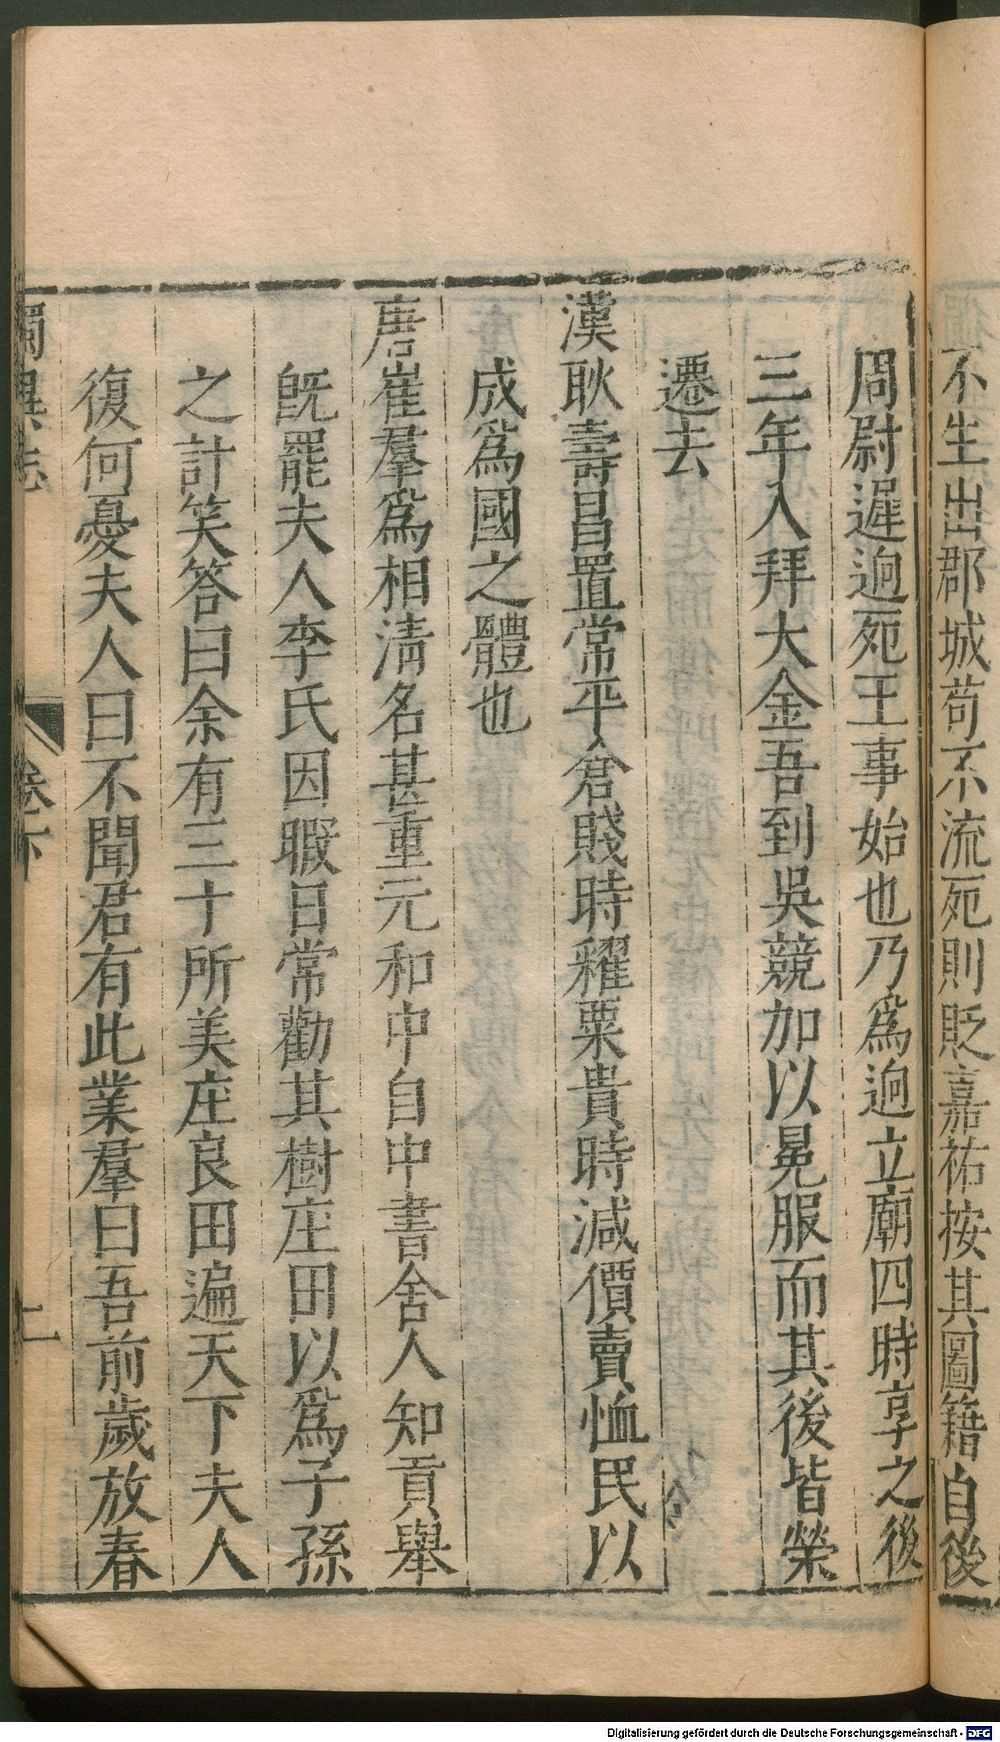 不生出郡城苟不流死則貶嘉祐按其圖籍自後
周尉遲逈死王事始也乃爲逈立廟四時享之後
三年入拜大金吾到吳競加以冕服而其後皆榮
遷去
漢耿壽昌置常平倉賤時糴粟貴時減價賣恤民以
成爲國之體也
唐崔羣爲相淸名甚重元和中自中書舍人知貢舉
旣罷夫人李氏因暇日常勸其樹庄田以爲子孫
之計笑答曰余有三十所美庄良田遍天下夫人
復何憂夫人曰不聞君有此業羣曰吾前歲放春
獨異志 卷下 二
Digitalisierung gefördert durch die Deutsche Forschungsgemeinschaft - DFG